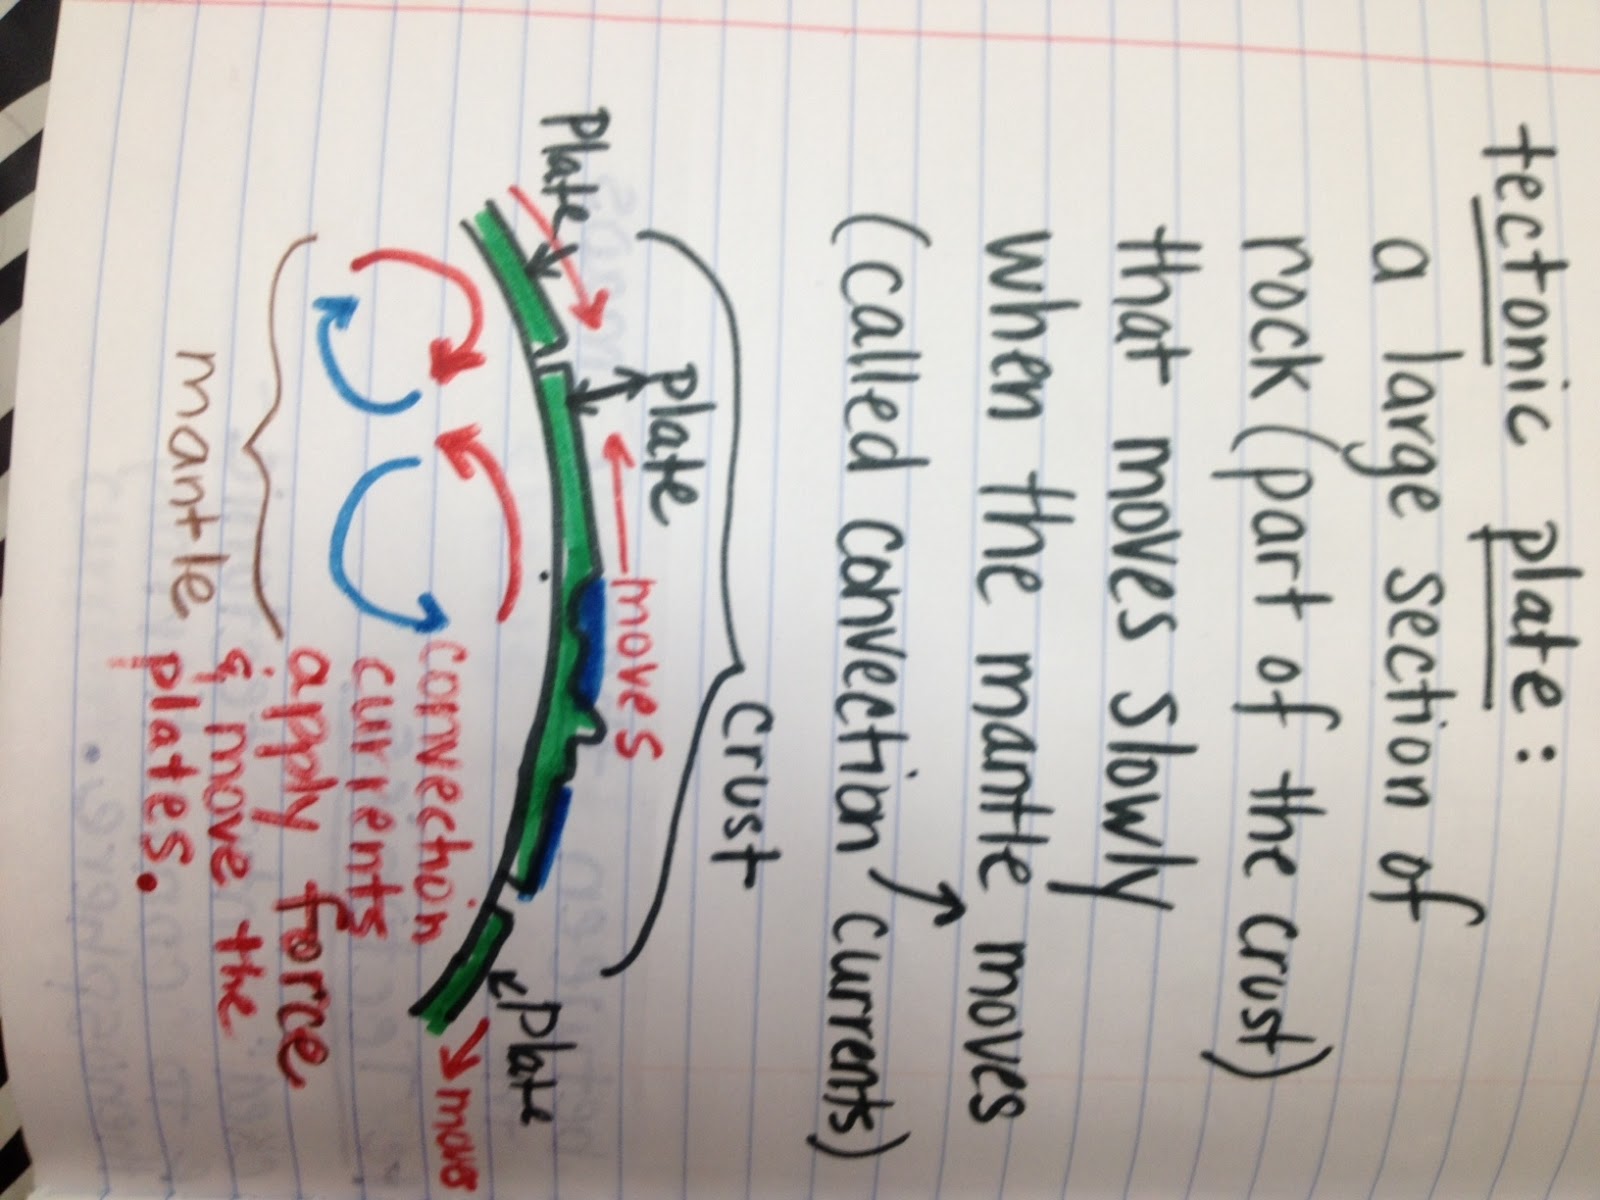 tectonic plate:
a large section of
rock (part of the crust)
that moves slowly
when the mantle moves
(called convection currents)
crust
plate
moves
plate
plate
moves
convection
currents
apply force
& move the
plates.
mantle